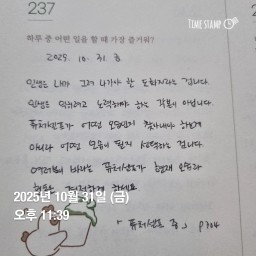 TIME STAMP
237
하루 중 어떤 일을 할 때 가장 즐거워?
2025. 10. 31. 금
인생은 내가 그려 나가야 할 도화지라는 겁니다.
인생은 막히려고 노력해야 하는 각본이 아닙니다.
퓨처셀프가 어떤 모습인지 찾아내야 하는게
아니라 어떤 모습이 될지 선택하는 겁니다.
여러분이 바라는 퓨처셀프가 현재 모습과
2025년 10월 31일 (금)
오후 11:39
「퓨처셀프 중」 p104